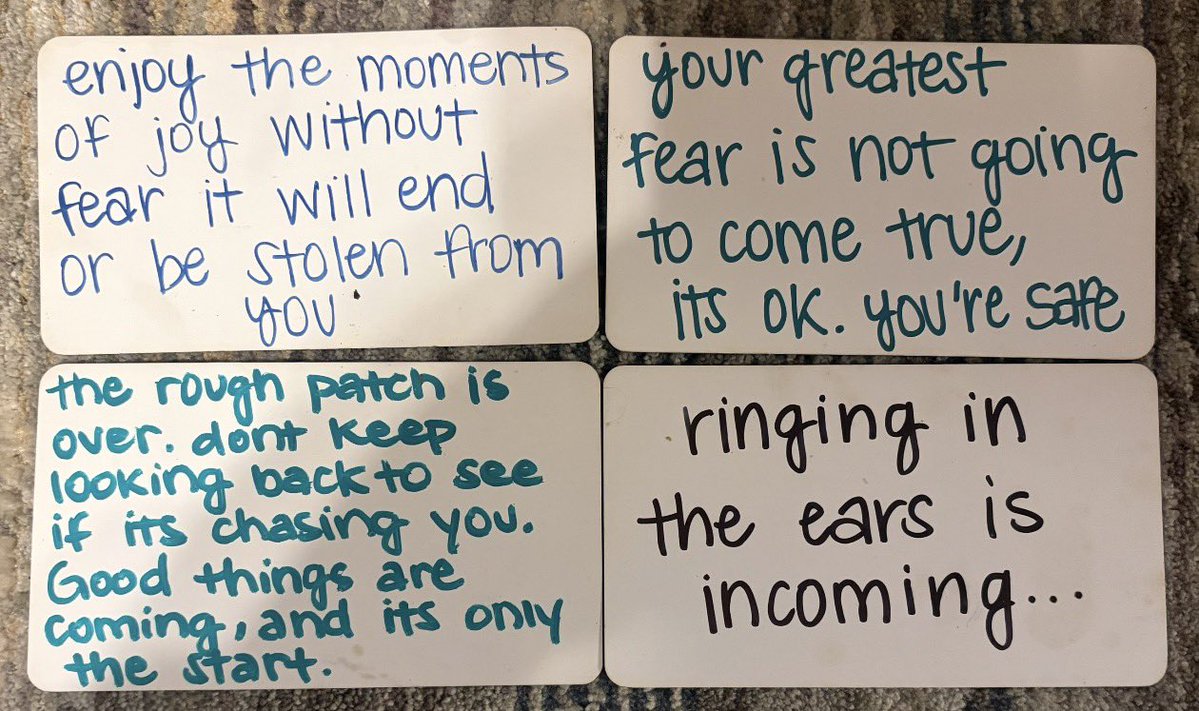 enjoy the moments
of joy without
fear it will end
or be stolen from
you
your greatest
fear is not going
to come true,
its ok. you're safe
the rough patch is
over. dont keep
looking back to see
if its chasing you.
Good things are
coming, and its only
the start.
ringing in
the ears is
incoming...